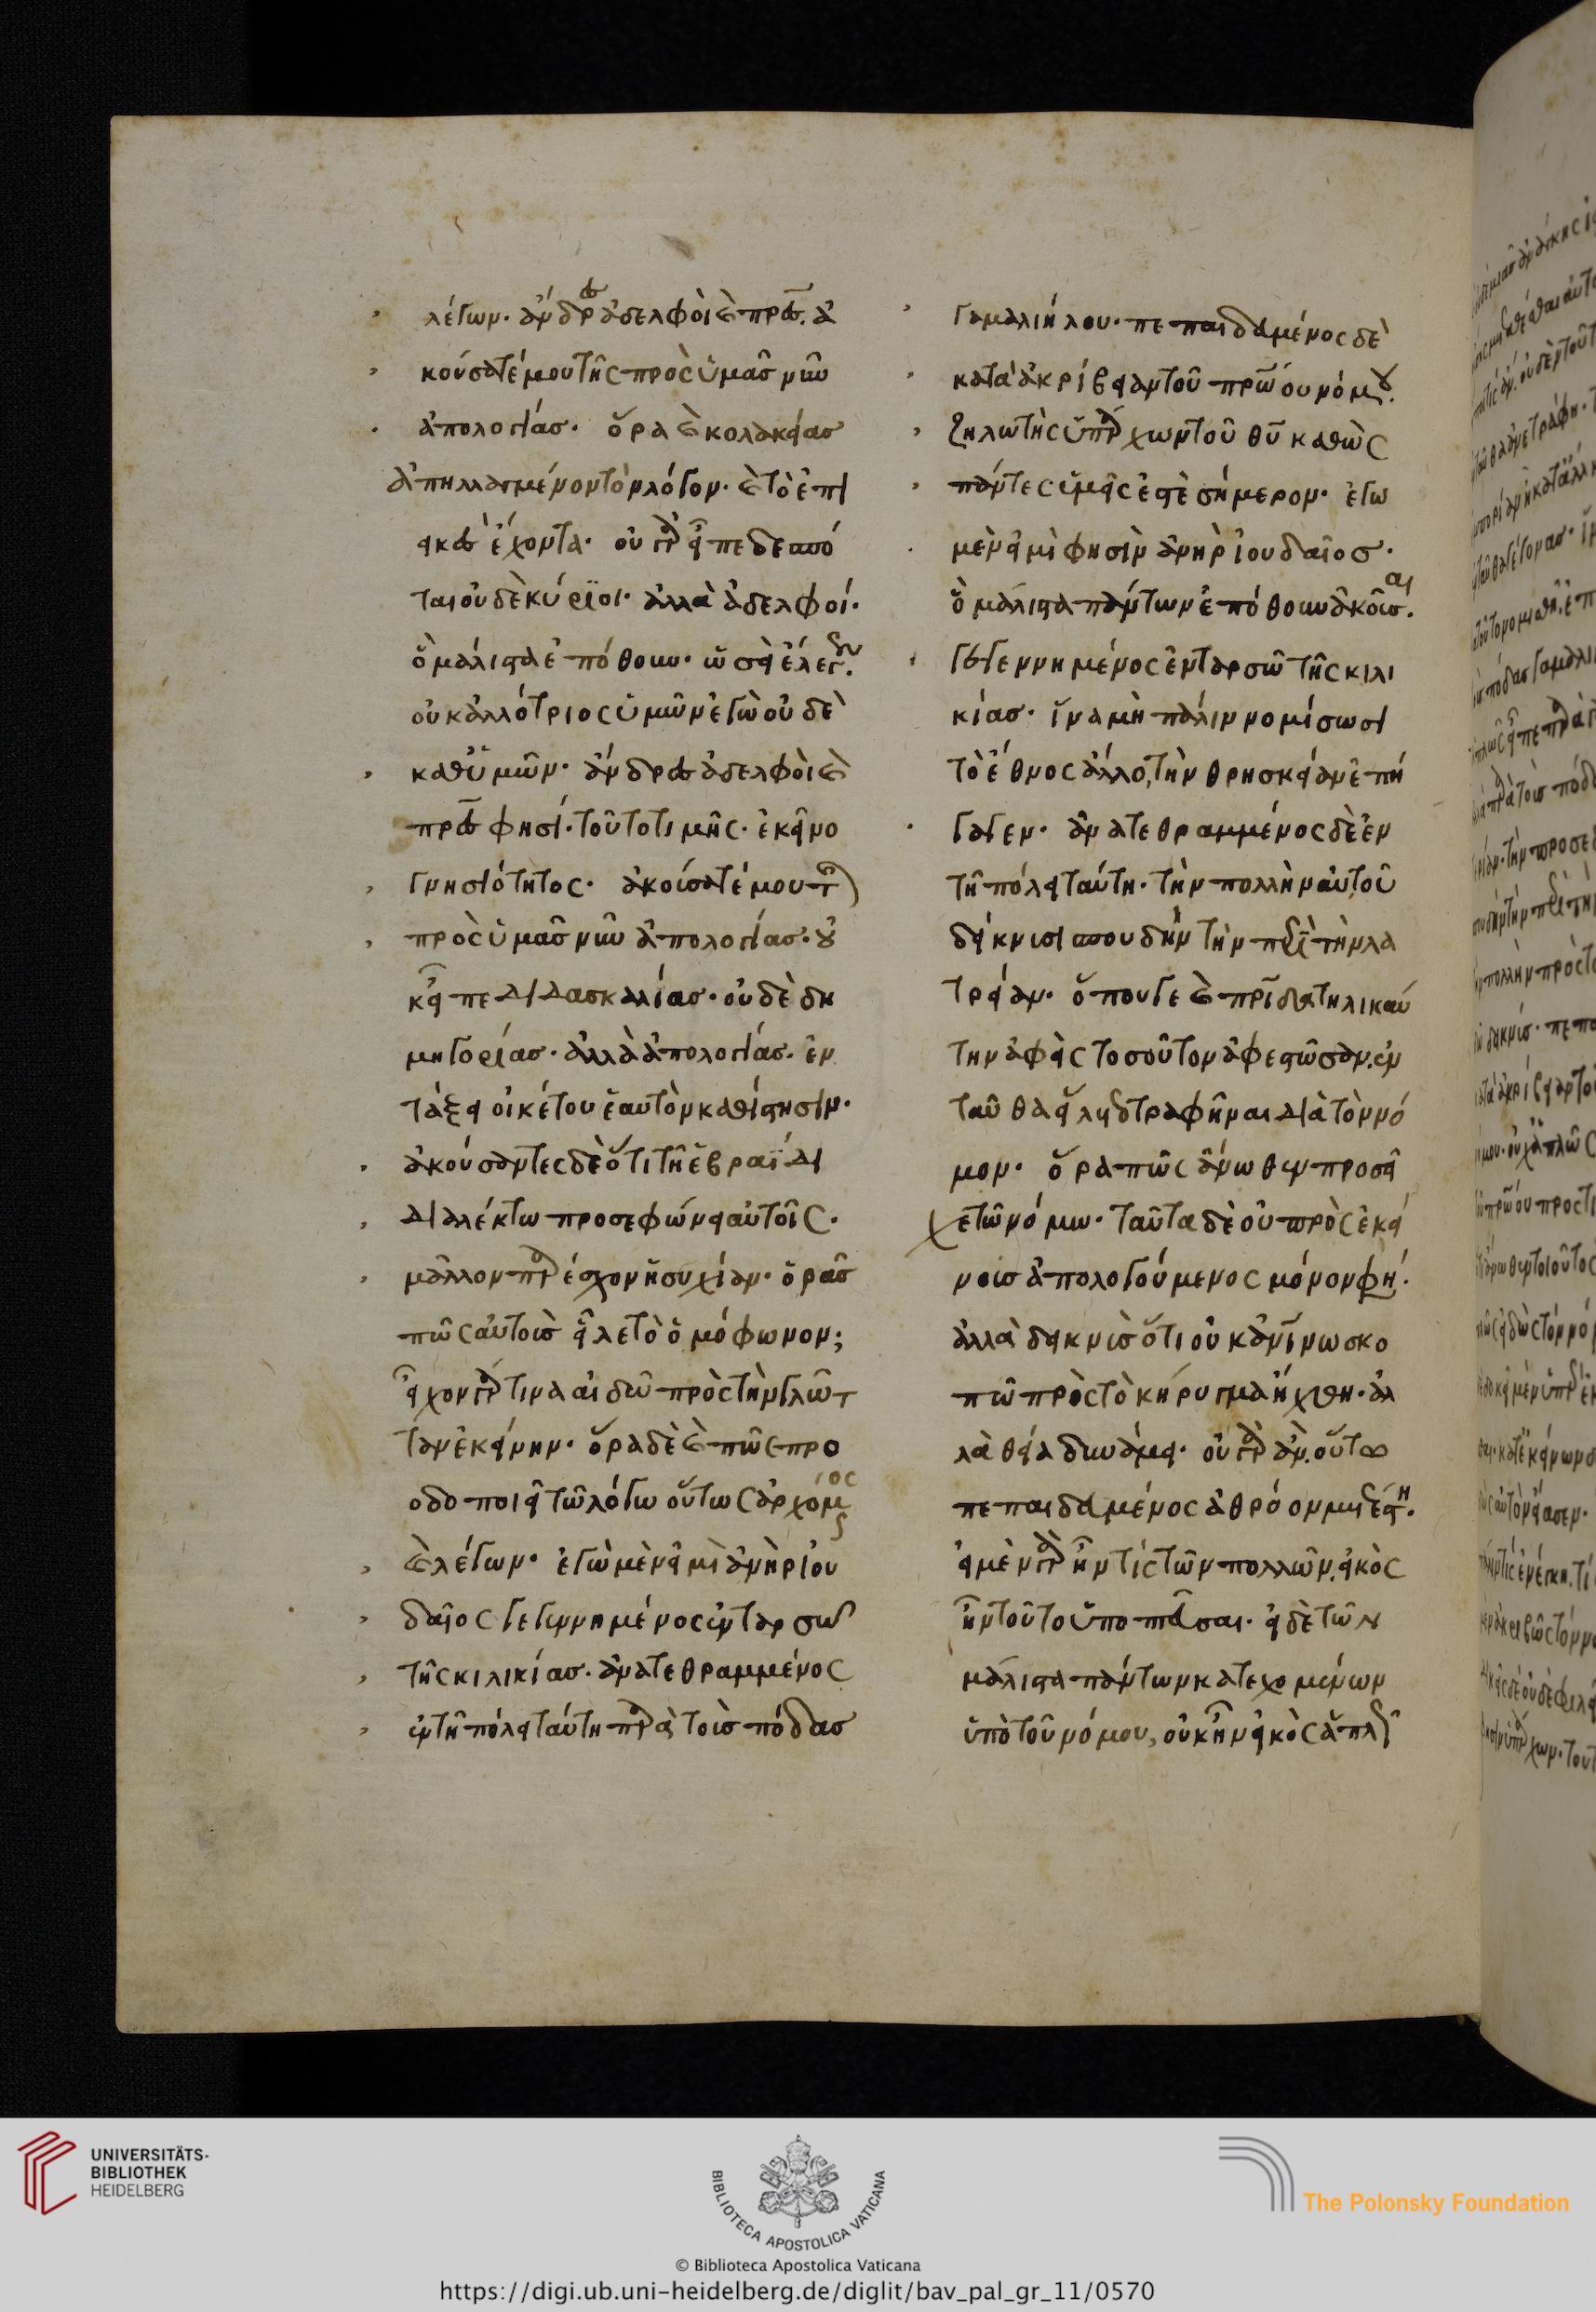 λέγων· ἄνδρες ἀδελφοὶ καὶ πρες. ἀ
κούσατέ μου τῆς πρὸς ὑμᾶς νῦν
ἀπολογίας· ὅρα καὶ κολακείας
ἀπηλλαγμένον τὸν λόγον· καὶ τὸ ἐπι
εικὲς ἔχοντα· οὐ γὰρ εἶπε δεσπό
ται οὐδὲ κύριοι· ἀλλὰ ἀδελφοί·
ὃ μάλιστα ἐπόθουν· ὡσεὶ ἔλεγεν.
οὐκ ἀλλότριος ὑμῶν ἐγὼ οὐδὲ
καθ' ὑμῶν· ἄνδρες ἀδελφοὶ καὶ
πρες φησί· τοῦτο τιμῆς· ἐκεῖνο
γνησιότητος· ἀκούσατέ μου τῆς
πρὸς ὑμᾶς νῦν ἀπολογίας· οὐ
κ εἶπε διδασκαλίας· οὐδὲ δη
μηγορίας· ἀλλὰ ἀπολογίας· ἐν
τάξει οἰκέτου ἑαυτὸν καθίστησιν·
ἀκούσαντες δὲ ὅτι τῇ ἑβραΐδι
διαλέκτω προσεφώνει αὐτοῖς·
μᾶλλον παρέσχον ἡσυχίαν· ὁρᾶς
πῶς αὐτοὺς εἷλε τὸ ὁμόφωνον;
εἶχον γάρ τινα αἰδῶ πρὸς τὴν γλῶτ
ταν ἐκείνην· ὅρα δὲ καὶ πῶς προ
οδοποιεῖ τῶ λόγω οὕτως ἀρχόμενος
καὶ λέγων· ἐγὼ μὲν εἰμὶ ἀνὴρ ἰου
δαῖος γεγεννημένος ἐν ταρσῶ
τῆς κιλικίας· ἀνατεθραμμένος
ἐν τῇ πόλει ταύτη παρὰ τοὺς πόδας
γαμαλιήλου· πεπαιδευμένος δὲ
κατὰ ἀκρίβειαν τοῦ πρώου νόμου.
ζηλωτὴς ὑπάρχων τοῦ θυ καθὼς
πάντες ὑμεῖς ἐστὲ σήμερον· ἐγω
μὲν εἰμὶ φησὶν ἀνὴρ ἰουδαῖος·
ὃ μάλιστα πάντων ἐπόθουν ἀκοῦσαι.
γεγεννημένος ἐν ταρσῶ τῆς κιλι
κίας· ἵνα μὴ πάλιν νομίσωσι
τὸ ἔθνος ἄλλο, τὴν θρησκείαν ἐπή
γαγεν· ἀνατεθραμμένος δὲ ἐν
τῇ πόλει ταύτη· τὴν πολλὴν αὐτοῦ
δείκνυσι σπουδὴν τὴν περὶ τὴν λα
τρείαν· ὅπου γε καὶ πρίδα τηλικαύ
την ἀφεὶς τοσοῦτον ἀφεστῶσαν, ἐν
ταῦθα εἵλετο τραφῆναι διὰ τὸν νό
μον· ὅρα πῶς ἄνωθεν προσεῖ
χε τῶ νόμω· ταῦτα δὲ οὐ πρὸς ἐκεί
νους ἀπολογούμενος μόνον φησί·
ἀλλὰ δεικνὺς ὅτι οὐκ ἀνθρωπίνω σκο
πῶ πρὸς τὸ κήρυγμα ἤχθη· ἀλ
λὰ θεία δυνάμει· οὐ γὰρ ἂν οὕτως
πεπαιδευμένος ἀθρόον μετέστη.
εἰ μὲν γὰρ ἦν τίς τῶν πολλῶν, εἰκὸς
ἦν τοῦτο ὑποπτεῦσαι· εἰ δὲ τῶν
μάλιστα πάντων κατεχομένων
ὑπὸ τοῦ νόμου, οὐκ ἦν εἰκὸς ἁπλῶς
UNIVERSITÄTS-
BIBLIOTHEK
HEIDELBERG
BIBLIOTECA APOSTOLICA VATICANA
The Polonsky Foundation
© Biblioteca Apostolica Vaticana
https://digi.ub.uni-heidelberg.de/diglit/bav_pal_gr_11/0570